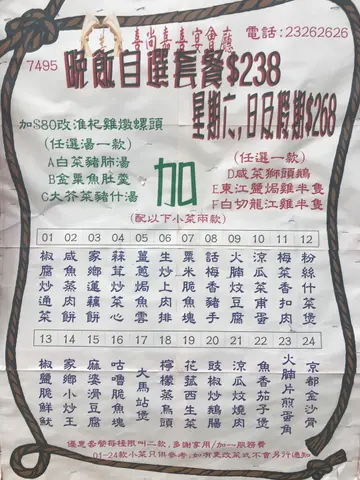 喜尚嘉喜宴會廳
電話:23262626
7495
晚飯自選套餐$238
星期六,日及假期$268
加$80改淮杞雞燉螺頭
(任選湯一款)
A白菜豬肺湯
B金粟魚肚羹
C大芥菜豬什湯
加
(任選一款)
D咸菜獅頭鵝
E東江鹽焗雞半隻
F白切龍江雞半隻
(配以下小菜兩款)
01 椒腐炒通菜
02 咸魚蒸肉餅
03 家鄉蓮藕餅
04 蒜茸炒菜心
05 薑蔥焗魚雲
06 生炒上肉排
07 粟米脆魚塊
08 話梅豬手
09 火腩豆腐
10 涼瓜甫肉
11 梅菜扣肉
12 粉絲什菜煲
13 椒鹽脆鮮魷
14 家鄉小炒王
15 麻婆滑豆腐
16 咕嚕脆魚塊
17 大馬站煲
18 檸檬蒸烏頭
19 花菇西生菜
20 豉椒炒鵝腸
21 涼瓜炆燒肉
22 魚香茄子煲
23 火腩片煎蛋角
24 京都金沙骨
優惠套餐每檯限叫二款,多謝享用/加一服務費
01-24款小菜只供參考,如有更改菜式不會另行通知